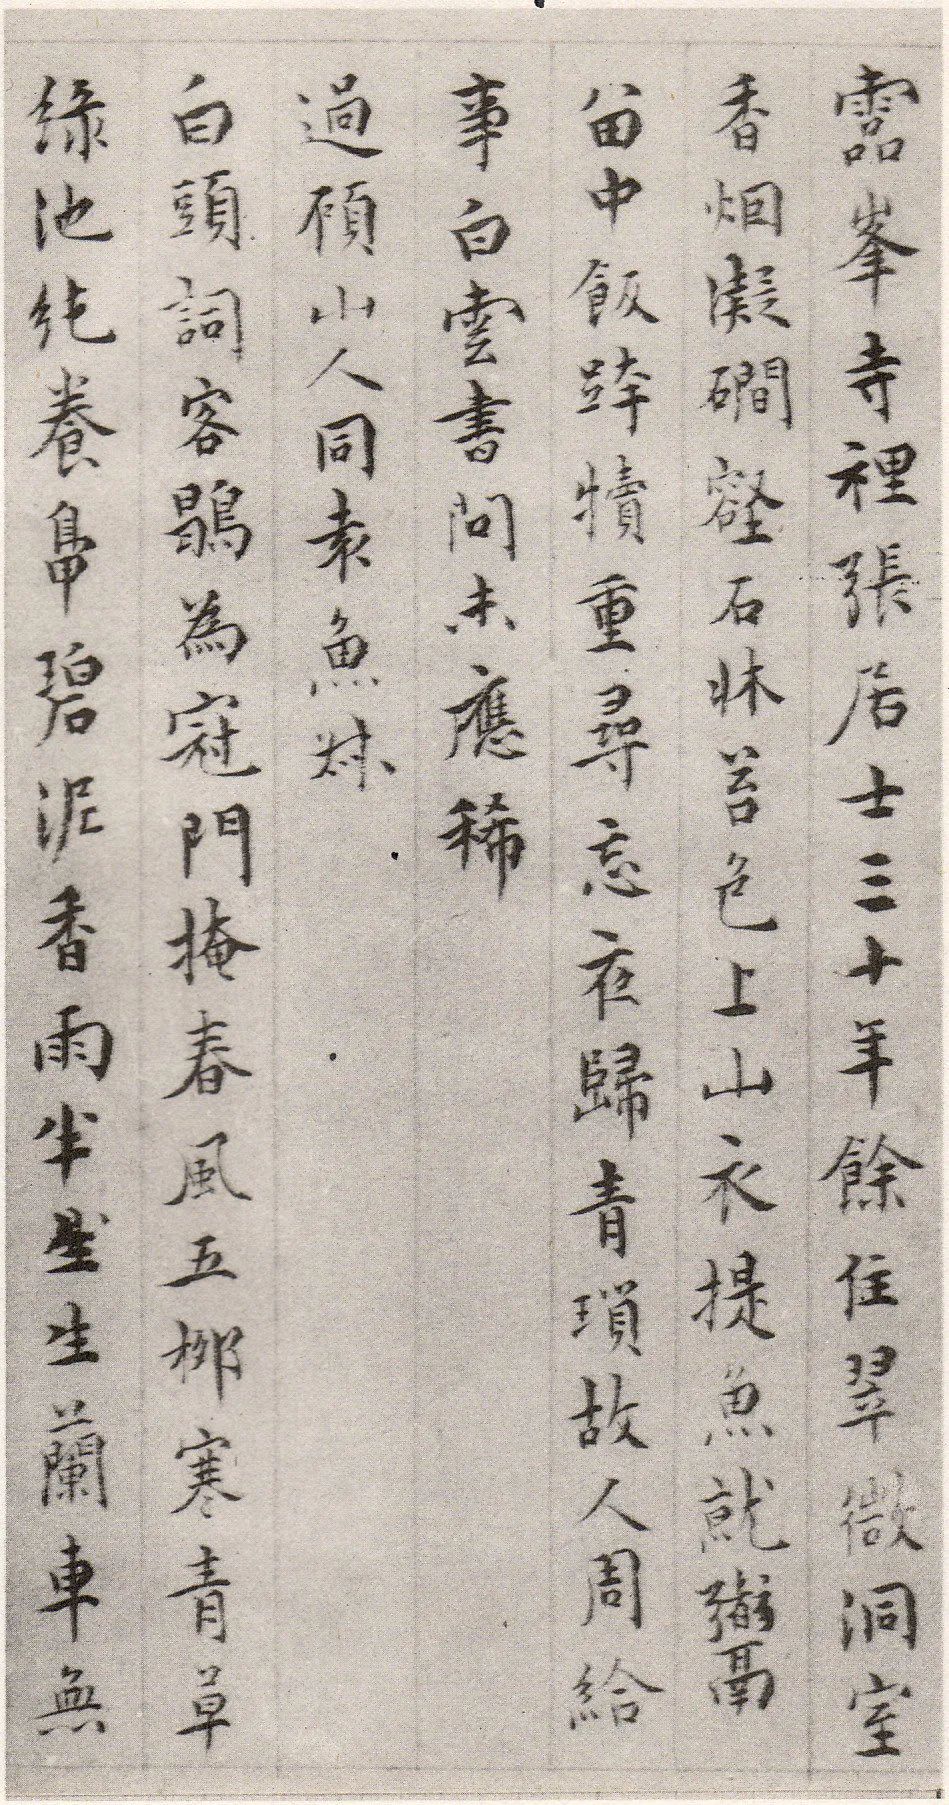 霝峯寺裡張居士三十年餘住翠微洞室
香烟凝磵壑石牀苔色上山衣提魚就鬻
中飯跨犢重尋忘夜歸青瑣故人周給
事白雲書問未應稀
過頋山人同袁魚
白頭詞客鶡為冠門掩春風五柳寒青草
綠池純養碧泥香雨半生蘭車無